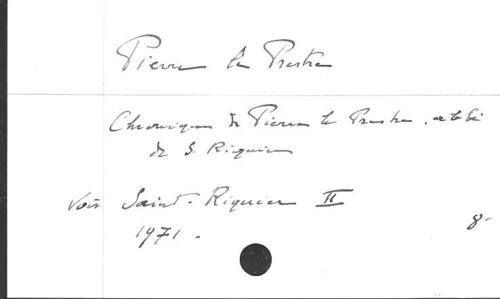 Pierre le Prestre
Chronique de Pierre le Prestre, abbé
de S. Riquier
Voir Saint-Riquier II
1971.
8°